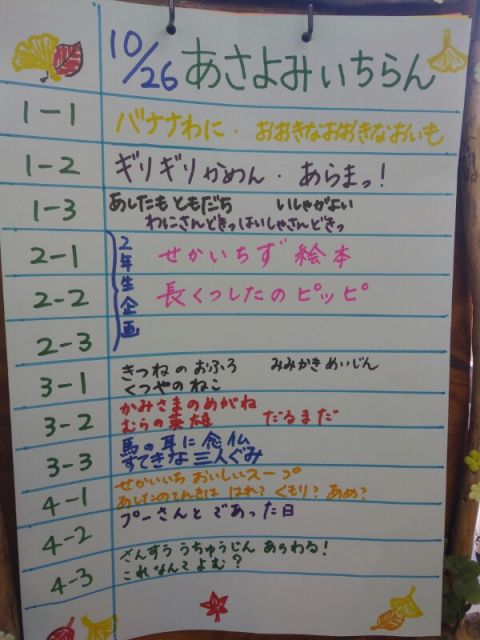 10/26 あさよみいちらん
1-1 バナナわに・おおきなおおきなおいも
1-2 ギリギリかめん・あらまっ!
1-3 あしたもともだち いしゃがよい
わにさんどきっはいしゃさんどきっ
2年生企画
2-1 せかいちず絵本
2-2 長くつしたのピッピ
2-3
3-1 きつねのおふろ みみかきめいじん
くつやのねこ
3-2 かみさまのめがね
むらの英雄 だるまだ
3-3 馬の耳に念仏
すてきな三人ぐみ
4-1 せかいいちおいしいスープ
あしたのてんきは はれ?くもり?あめ?
4-2 プーさんとであった日
4-3 さんすううちゅうじんあらわる!
これなんてよむ?